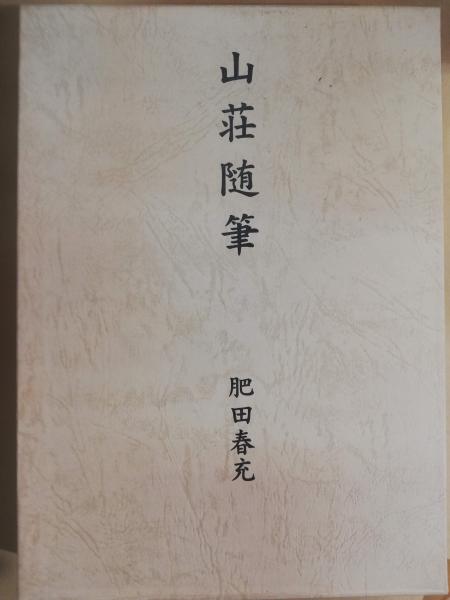 山荘随筆
肥田春充